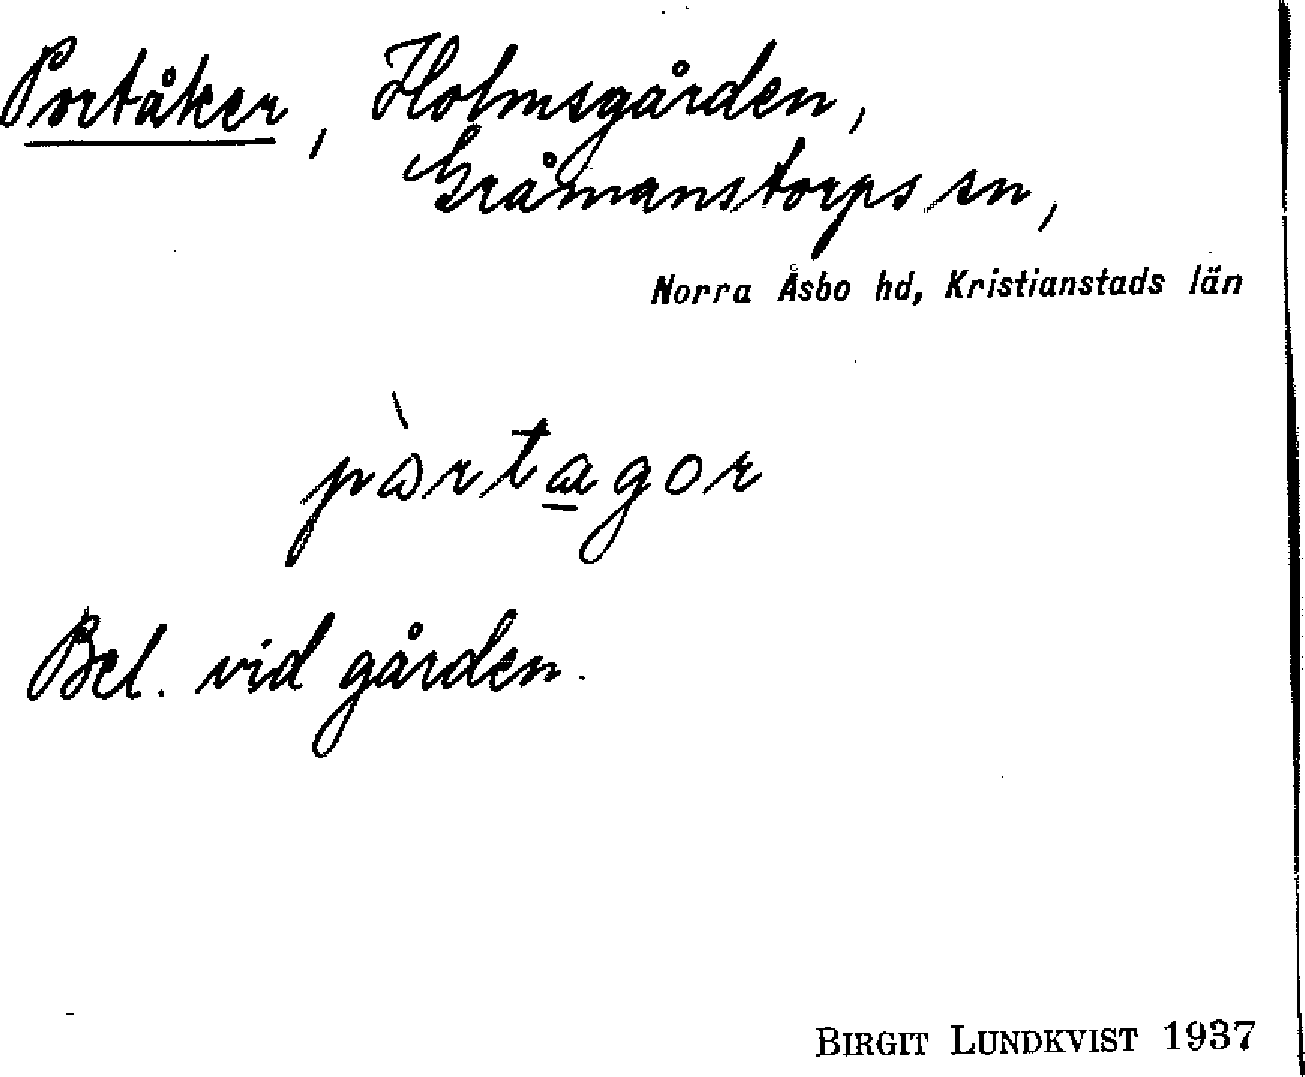 Portåker, Holmsgården,
Gråmanstorps sn,
Norra Åsbo hd, Kristianstads län
pàrtagor
Bel. vid gården.
BIRGIT LUNDKVIST 1937